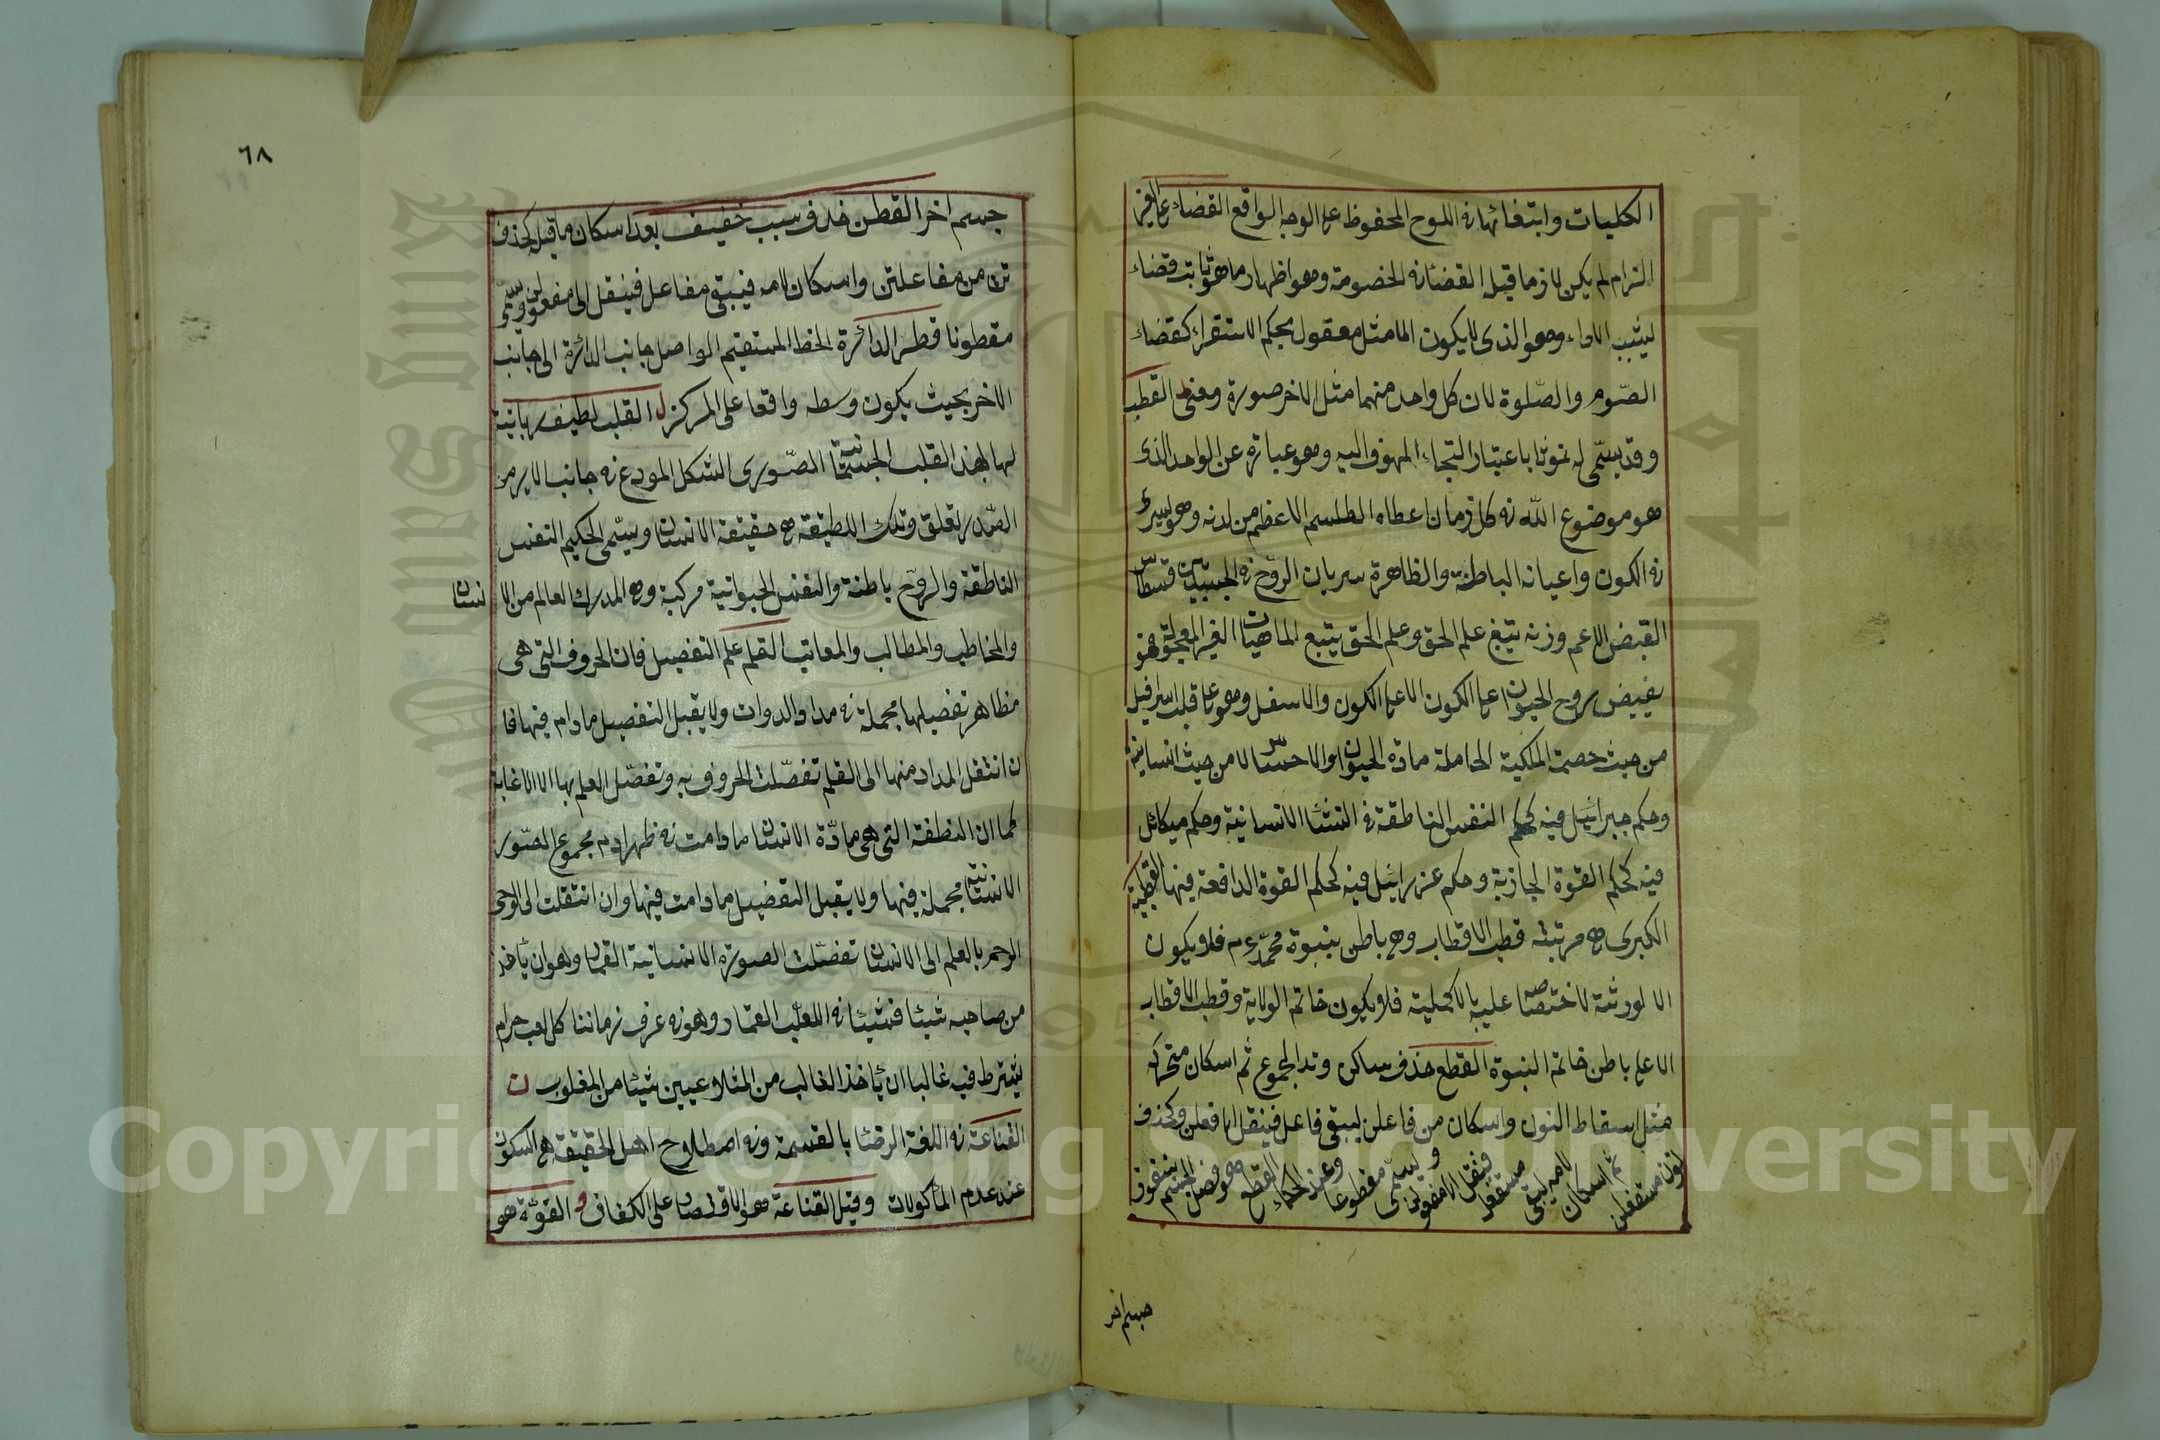 الكليات وابتغائها في اللوح المحفوظ على الوجه الواقع القضاء على الغير
التزام لم يكن لازما قبله القضاء في الخصومة وهو اظهار ما هو ثابت قضاء
الاداء وهو الذى لا يكون الا مثل معقول بحكم الاستقراء كقضاء
الصّوم والصّلوة لان كل واحد منهما مثل الاخر صورة ومعنى القطب
وقد يسمّى له غوثا باعتبار التجاء الملهوف اليه وهو عبارة عن الواحد الذى
هو موضوع اللّه في كل زمان اعطاه الطلسم الاعظم من لدنه وهو يسرى
في الكون واعيانه الباطنة والظاهرة سريان الروح في الجسد بيده قسطاس
الفيض الاعم وزنه يتبع علم الحق وعلم الحق يتبع الماهيات الغير المجعولة فهو
يفيض روح الحيوة على الكون الاعلى الكون والاسفل وهو على قلب اسرافيل
من حيث حصته الملكية الحاملة مادة الحيوة والاحساس لا من حيث انسانيته
وحكم جبرائيل فيه كحكم النفس الناطقة في النشأ الانسانية وحكم ميكائل
فيه كحكم القوة الجاذبة وحكم عزرائيل فيه كحكم القوة الدافعة فيها القطبية
الكبرى هي مرتبة قطب الاقطاب وهي باطن نبوة محمّد عم فلا يكون
الا لورثته لاختصاصه عليه بالاكملية فلا يكون خاتم الولاية وقطب الاقطاب
الا على باطن خاتم النبوة القطع حذف ساكن وتد المجموع ثم اسكان متحركه
مثل اسقاط النون واسكان من فاعلن ليبقى فاعل فينقل الى فعلن وكحذف
نون مستفعلن ثم اسكان لامه ليبقى مستفعل فينقل الى مفعولن ويسمّى مقطوعا وعند الحكماء القطع هو فصل الجسم بنفوذ
جسم اخر
٦٨
جسم اخر القطن حذف سبب خفيف بعد اسكان ما قبله كحذف
تن من مفاعلتن واسكان لامه فيبقى مفاعل فينقل الى مفعولن ويسمّى
مقطونا قطر الدائرة الخط المستقيم الواصل جانب الدائرة الى جانب
الاخر بحيث يكون وسطه واقعا على المركز ل القلب لطيفة ربانية
لها بهذا القلب الجسمانى الصّورى الشكل المودع في جانب الايسر من
الصّدر تعلق وتلك اللطيفة هي حقيقة الانسان ويسمّى الحكيم النفس
الناطقة والروح باطنة والنفس الحيوانية مركبة وهي المدرك العالم من الا
نسان
والمخاطب والمطالب والمعاتب القلم علم التفصيل فان الحروف التى هى
مظاهر تفصيلها مجملة في مداد الدوات ولا يقبل التفصيل ما دام فيها فا
ن انتقل المداد منها الى القلم تفصّلت الحروف به وتفصّل العلم بها الا الغاية
كما ان النطفة التى هى مادّة الانسان ما دامت في ظهر ادم مجموع الصّور
الانسانية مجملة فيها ولا يقبل التفضيل ما دامت فيها وان انتقلت الى لوح
الرحم بالعلم الى الانسان تفصّلت الصورة الانسانية القمار وهو ان يأخذ
من صاحبه شيئا فشيئا في اللعب القمار وهو في عرف زماننا كل لعب حرام
يشترط فيه غالبا ان يأخذ الغالب من المتلاعبين شيئا من المغلوب ن
القناعة في اللغة الرضا بالقسمة وفي اصطلاح اهل الحقيقة هى السكون
عند عدم المأكولات وقيل القناعة هو الاقتصار على الكفاف و القوّة هو